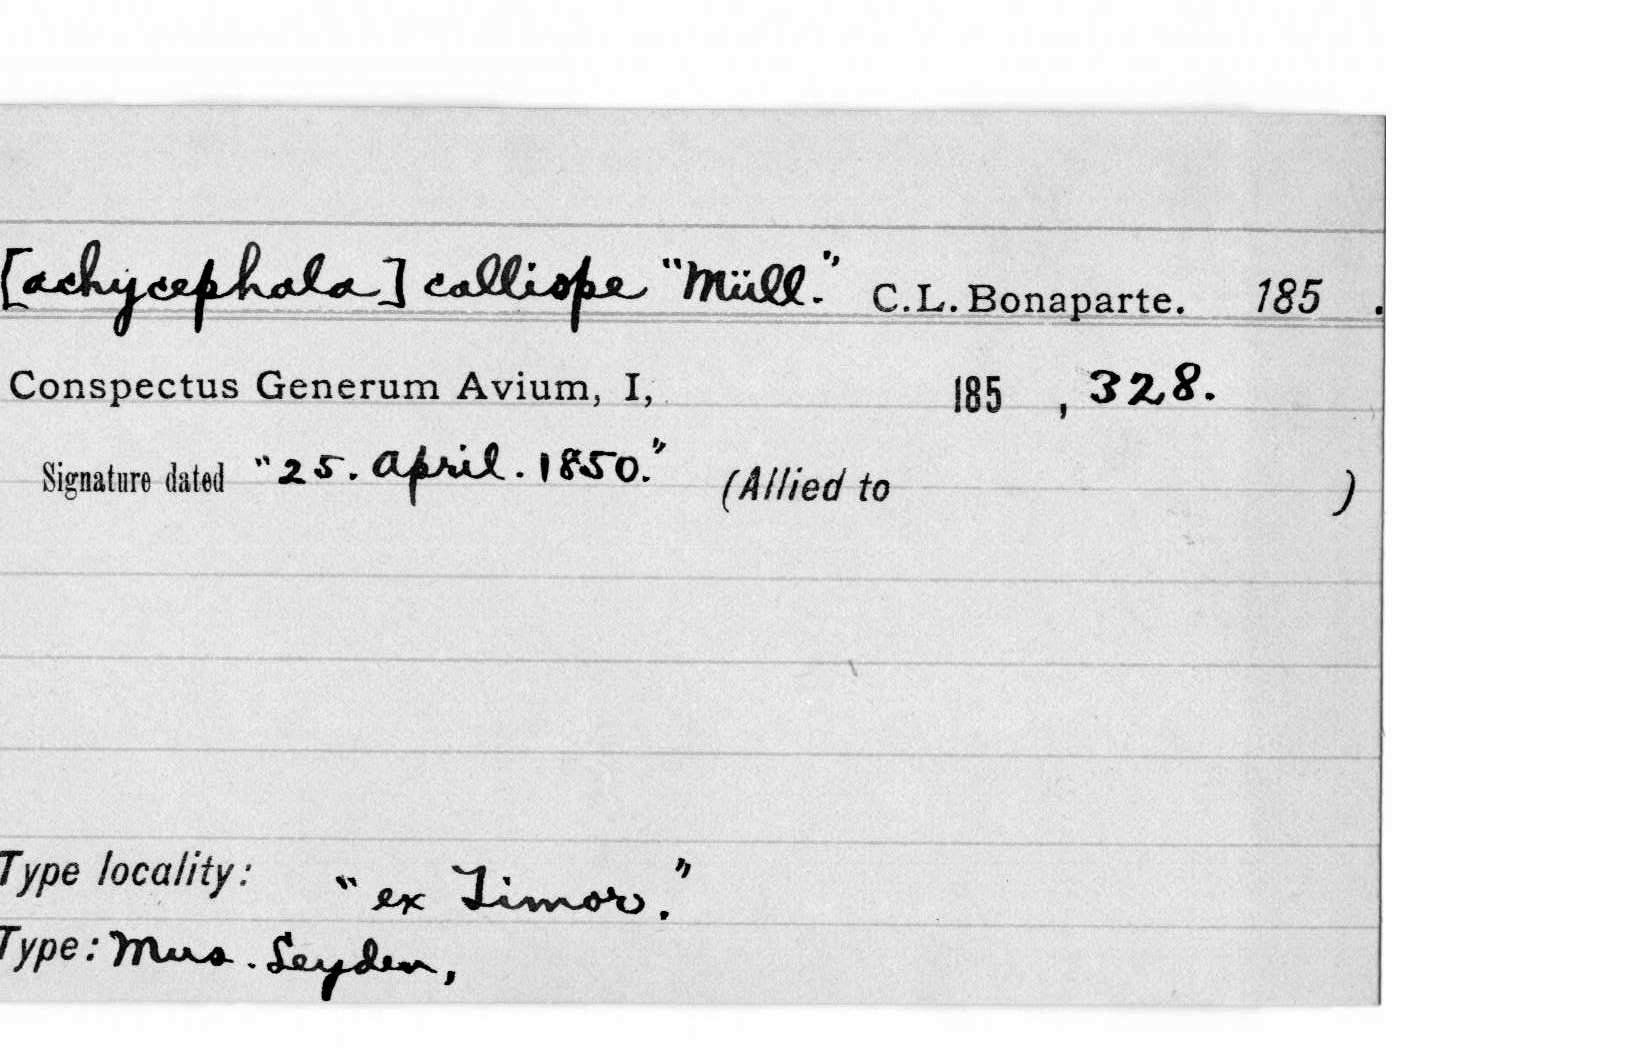 [achycephala] calliope "Müll." C.L. Bonaparte. 185 .
Conspectus Generum Avium, I, 185 , 328.
Signature dated "25. April. 1850." (Allied to )
Type locality: "ex Timor."
Type: Mus. Leyden,